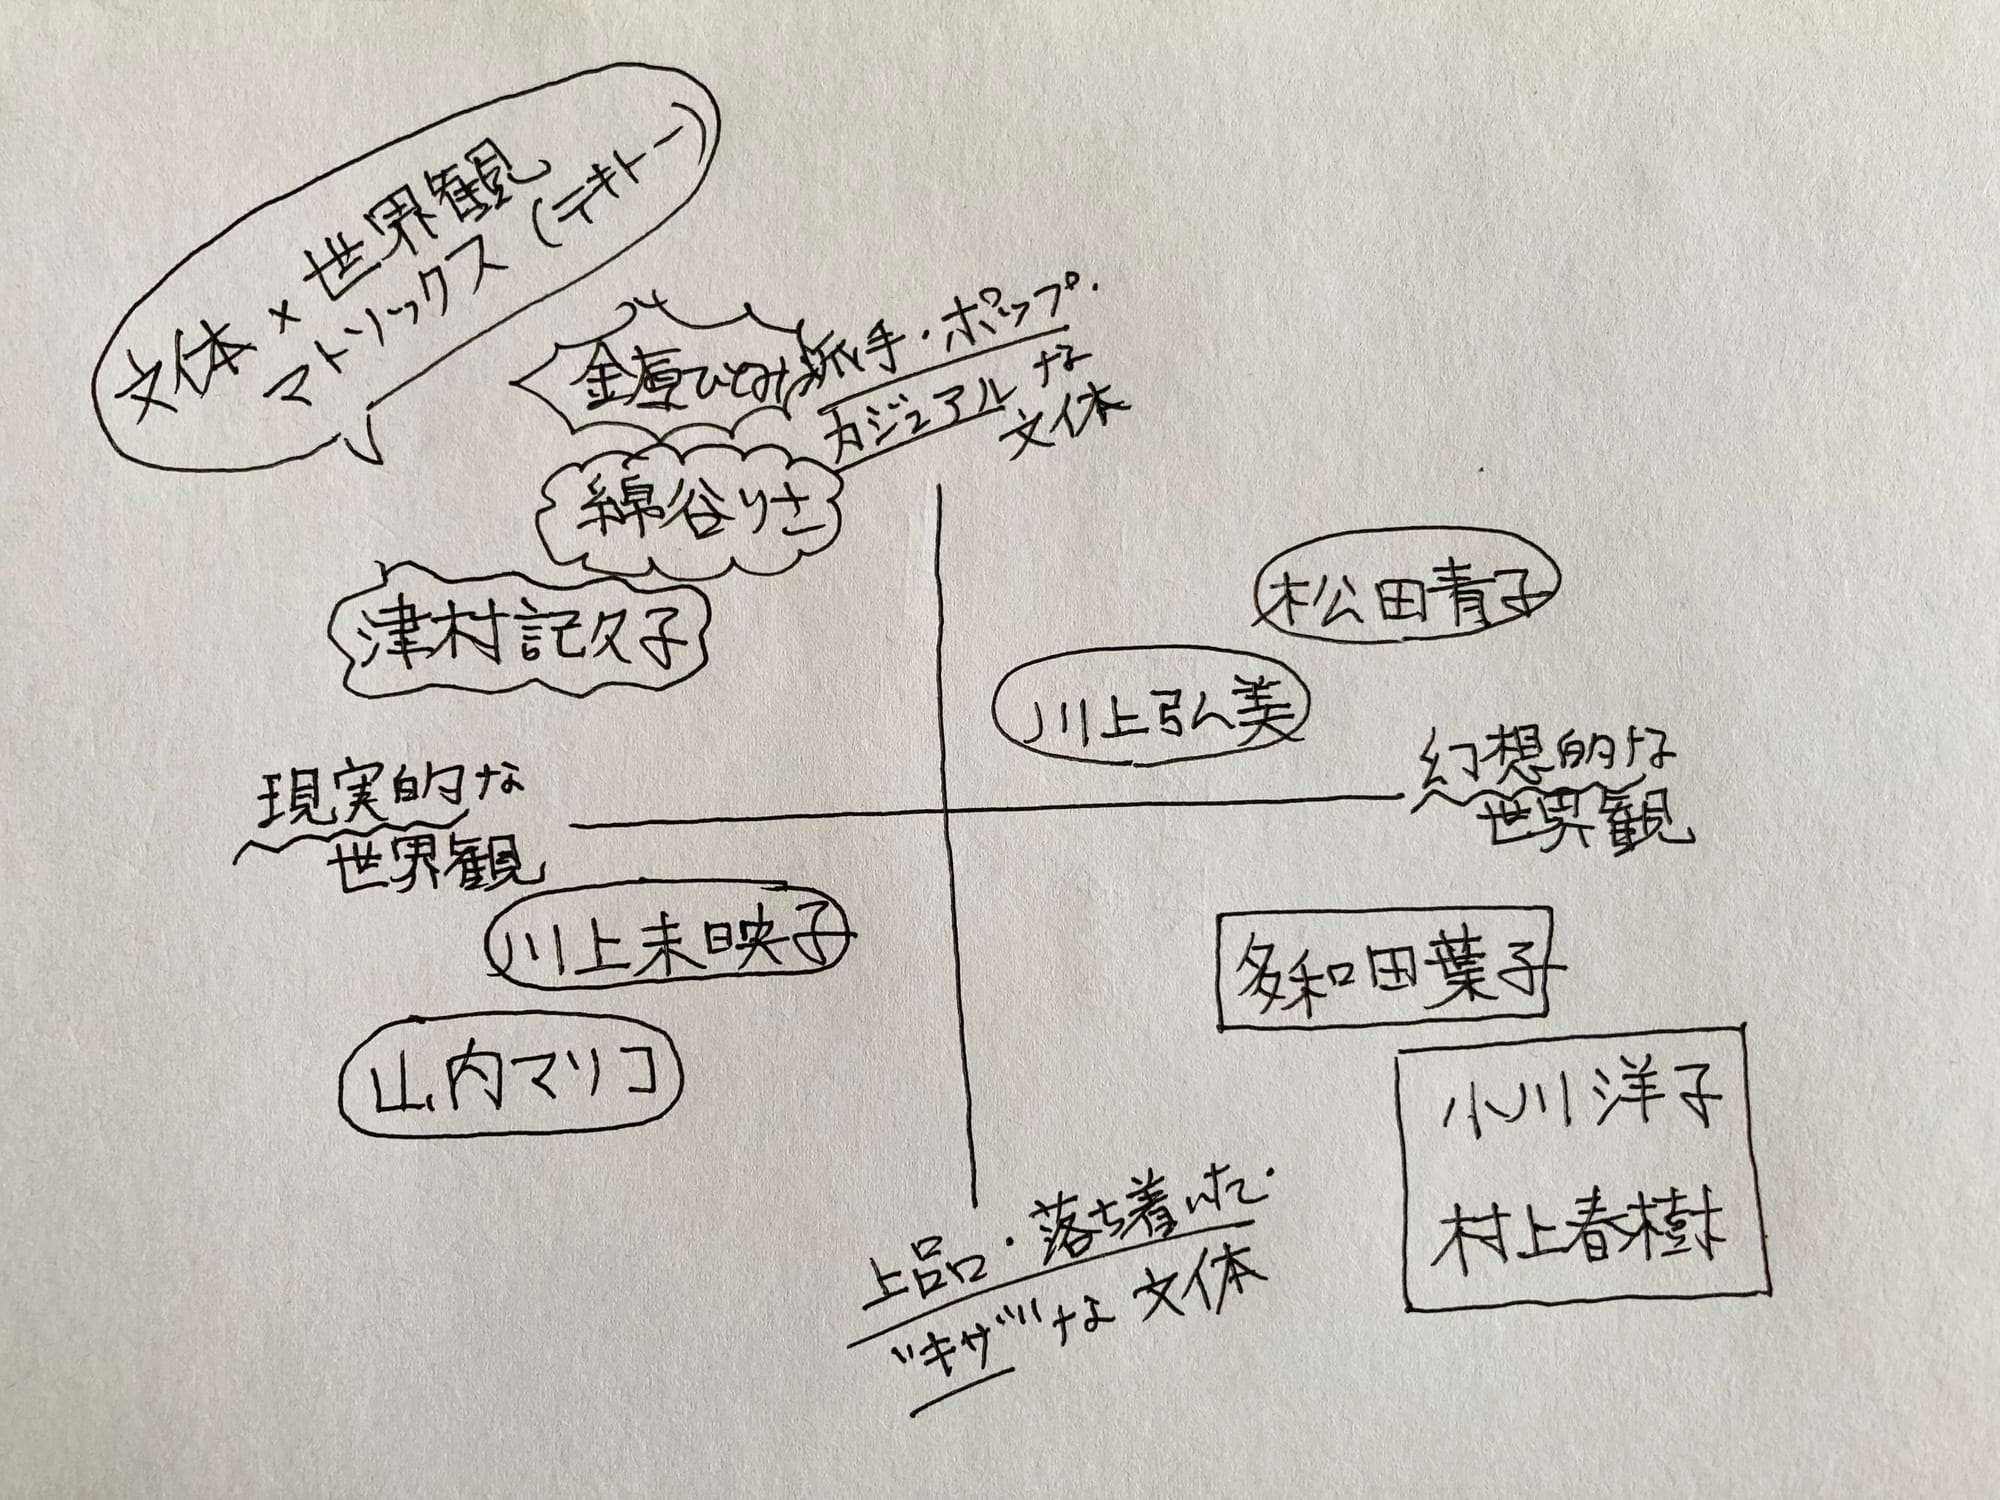 文体×世界観
マトリックス(テキトー)
金原ひとみ
派手・ポップ・
カジュアルな
文体
綿谷りさ
津村記久子
松田青子
川上弘美
現実的な
世界観
幻想的な
世界観
川上未映子
山内マリコ
多和田葉子
小川洋子
村上春樹
上品・落ち着いた・
"キザ"な文体